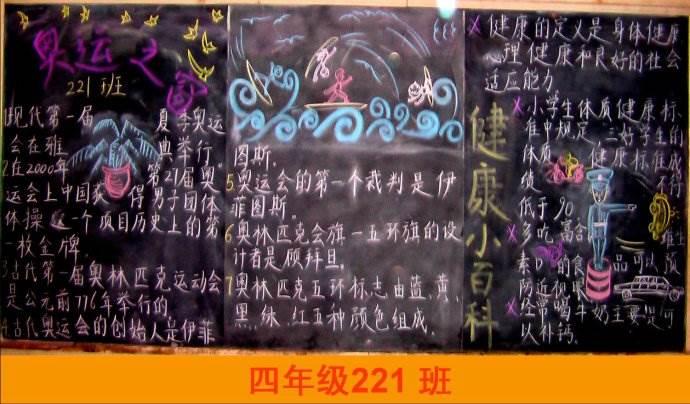 奥运之
221班
1现代第一届 夏季奥运
会在雅 典举行。
2在2000年 第27届奥
运会上中国获 得男子团体
体操这一个项目历史上的第
一枚金牌。
3古代第一届奥林匹克运动会
是公元前776年举行的。
4古代奥运会的创始人是伊菲
图斯。
5奥运会的第一个裁判是伊
菲图斯。
6奥林匹克会旗一五环旗的设
计者是顾拜旦。
7奥林匹克五环标志由蓝、黄、
黑、绿、红五种颜色组成。
健康小百科
X健康的定义是身体健康
心理健康和良好的社会
适应能力
X小学生体质健康标
准中规定,三好学生的
体质 健康标准成
绩 不得
低于90
X多吃 高含 维生
素D的食 品可以预
防近视眼
X经常喝牛奶主要是可
以补钙。
四年级221 班